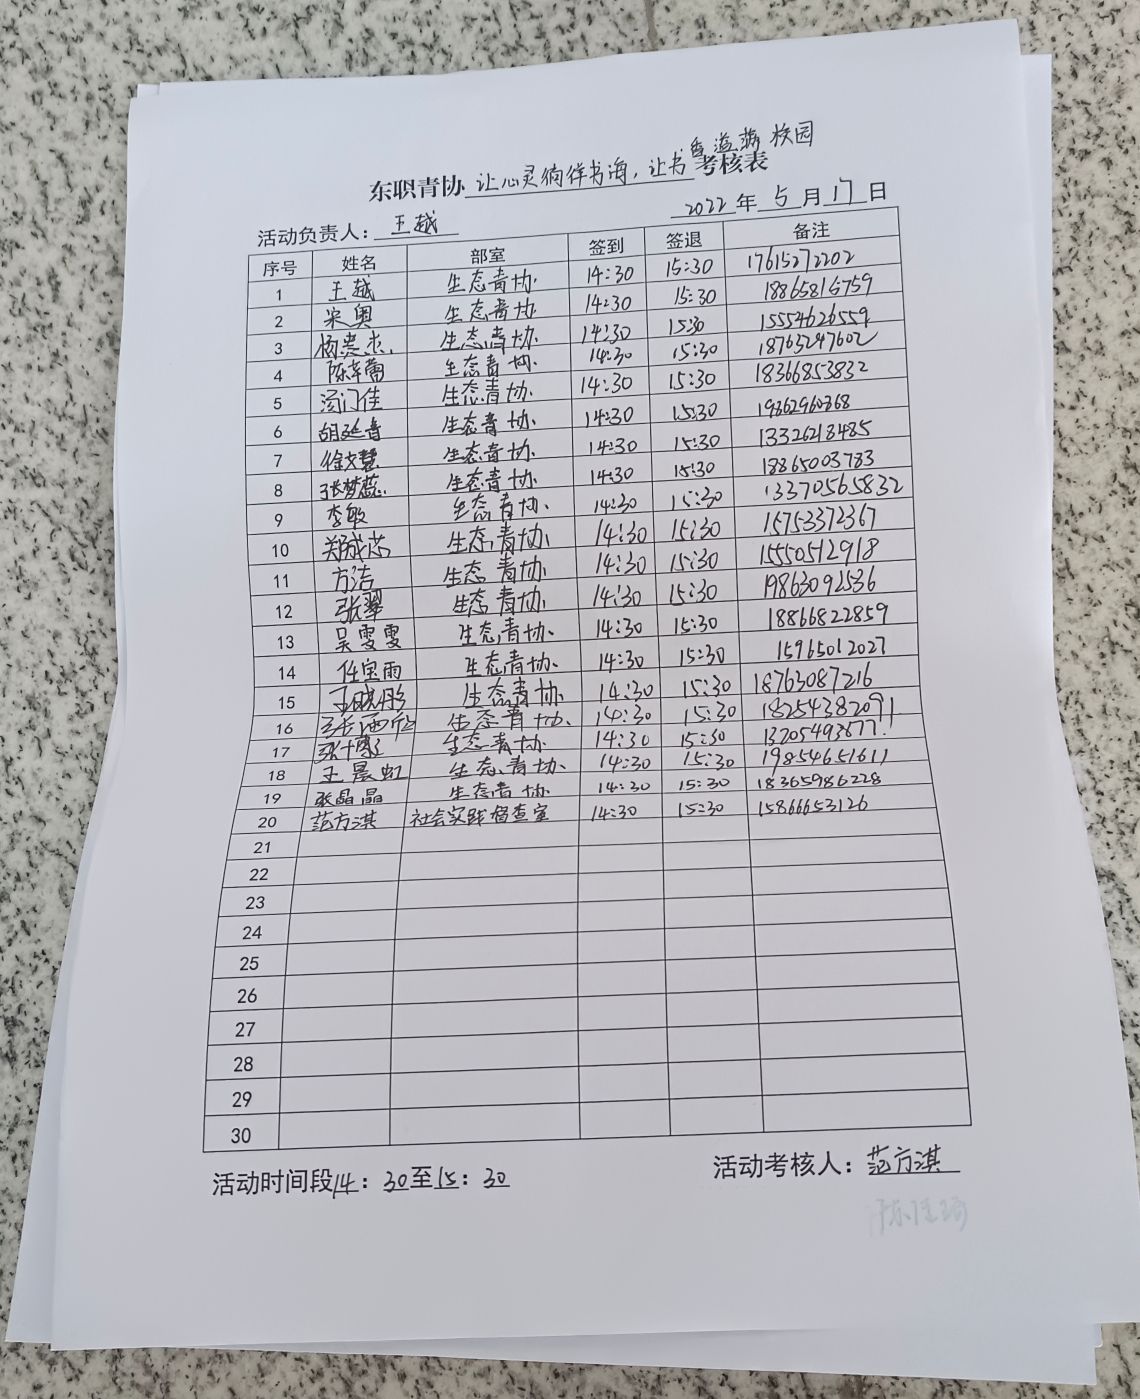 东职青协让心灵徜徉书海，让书香溢满校园考核表
2022年5月17日
活动负责人：王越
序号 姓名 部室 签到 签退 备注
1 王越 生态青协 14:30 15:30 17615272202
2 宋奥 生态青协 14:30 15:30 18865816759
3 生态青协 14:30 15:30 15554626559
4 生态青协 14:30 15:30 18763247602
5 汤门佳 生态青协 14:30 15:30 18366853832
6 胡延青 生态青协 14:30 15:30 19362960368
7 徐文慧 生态青协 14:30 15:30 13326213485
8 张梦蕊 生态青协 14:30 15:30 18865003783
9 李敏 生态青协 14:30 15:30 13370565832
10 生态青协 14:30 15:30 15753372367
11 方洁 生态青协 14:30 15:30 15550512918
12 张翠 生态青协 14:30 15:30 19863092536
13 吴雯雯 生态青协 14:30 15:30 18866822859
14 任宝雨 生态青协 14:30 15:30 15965012027
15 王晓彤 生态青协 14:30 15:30 18763087216
16 生态青协 14:30 15:30 18254382091
17 生态青协 14:30 15:30
18 王晨虹 生态青协 14:30 15:30 19854651611
19 张晶晶 生态青协 14:30 15:30 18365986228
20 范方淇 社会实践督查室 14:30 15:30 15866653126
21
22
23
24
25
26
27
28
29
30
活动时间段14：30至15：30
活动考核人：范方淇